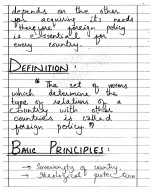 depends on the other
for acquiring its needs
therefore foreign policy
is essential for
every country.
DEFINITION:
" The set of norms
which determine the
type of relations of a
country with other
countries is called
foreign policy "
BASIC PRINCIPLES:
→ Sovereignty of country.
→ Ideological protection